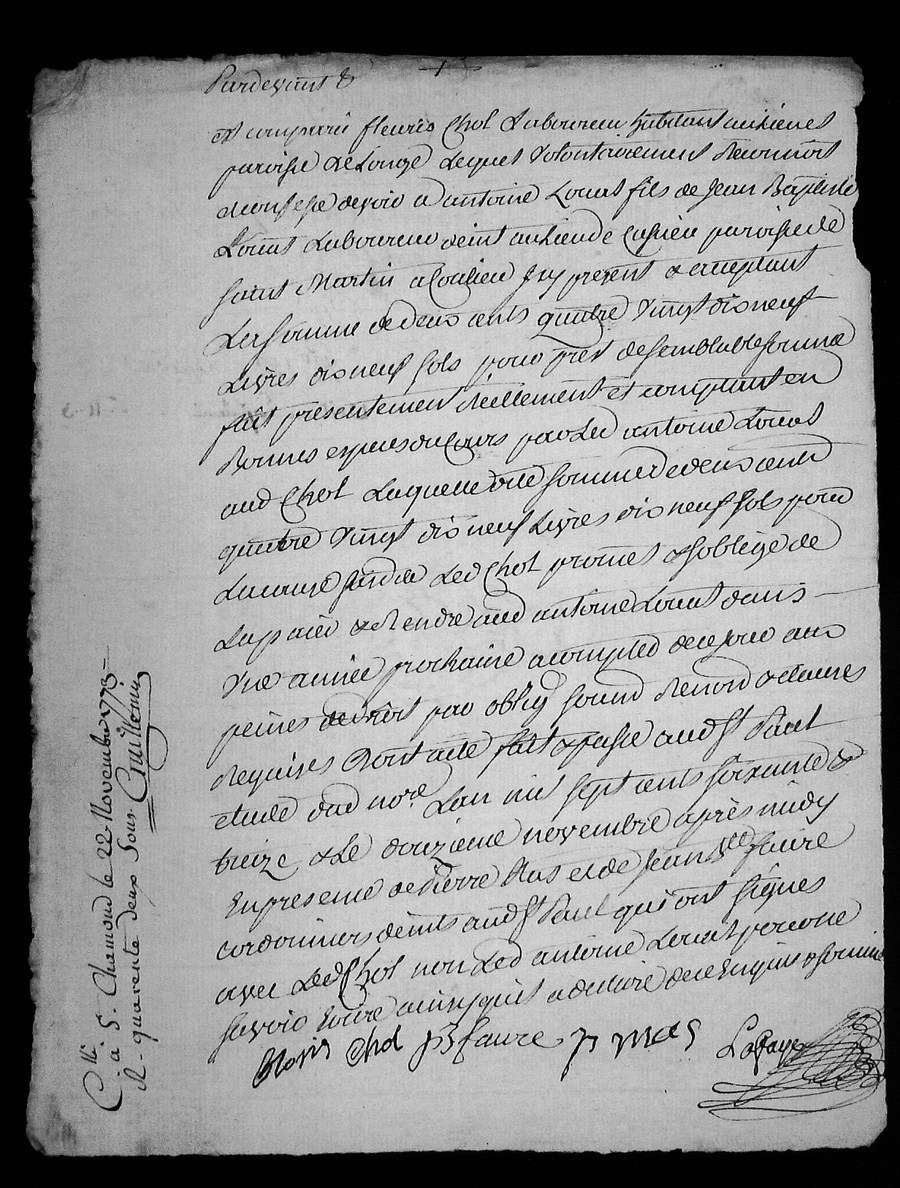 Pardevant &
est comparu fleuris Chol Laboureur habitant
paroisse de Longe Lequel volontairement Reconnoit
& confesse devoir a antoine Louat fils de Jean Baptiste
Louat Laboureur deint au lieu de paroisse de
Saint Martin a Coalieu Icy present & acceptant
La somme de deux cents quatre vingt dix neuf
Livres dix neuf sols pour prêt de semblable somme
fait presentement réellement et comptant en
Bonnes especes du Cours par Led antoine Louat
aud Chol Laquelle dite somme de deux cents
quatre vingt dix neuf Livres dix neuf sols pour
La cause susdite Led Chol promet & soblige de
La paier & Rendre aud antoine Louat dans
Une année prochaine a compter de ce jour aux
peines de droit par oblig soumd Renond & clauses
Requises Dont acte fait & passé aud St Paul
etude dud nore Lan mil sept cents soixante &
treize & Le douzieme novembre après midy
En presence de pierre Mas et de Jean Bte faure
cordonniers deints aud St Paul qui ont signés
avec Led Chol non Led antoine Louat pour ne
savoir Ecrire ainsy quil a declaré de ce Enquis & sommé
Chol JB faure p mas Lafaye
Cllé à S. Chamond le 22 Novembre 1773
R. quarente deux Sous Guillemin